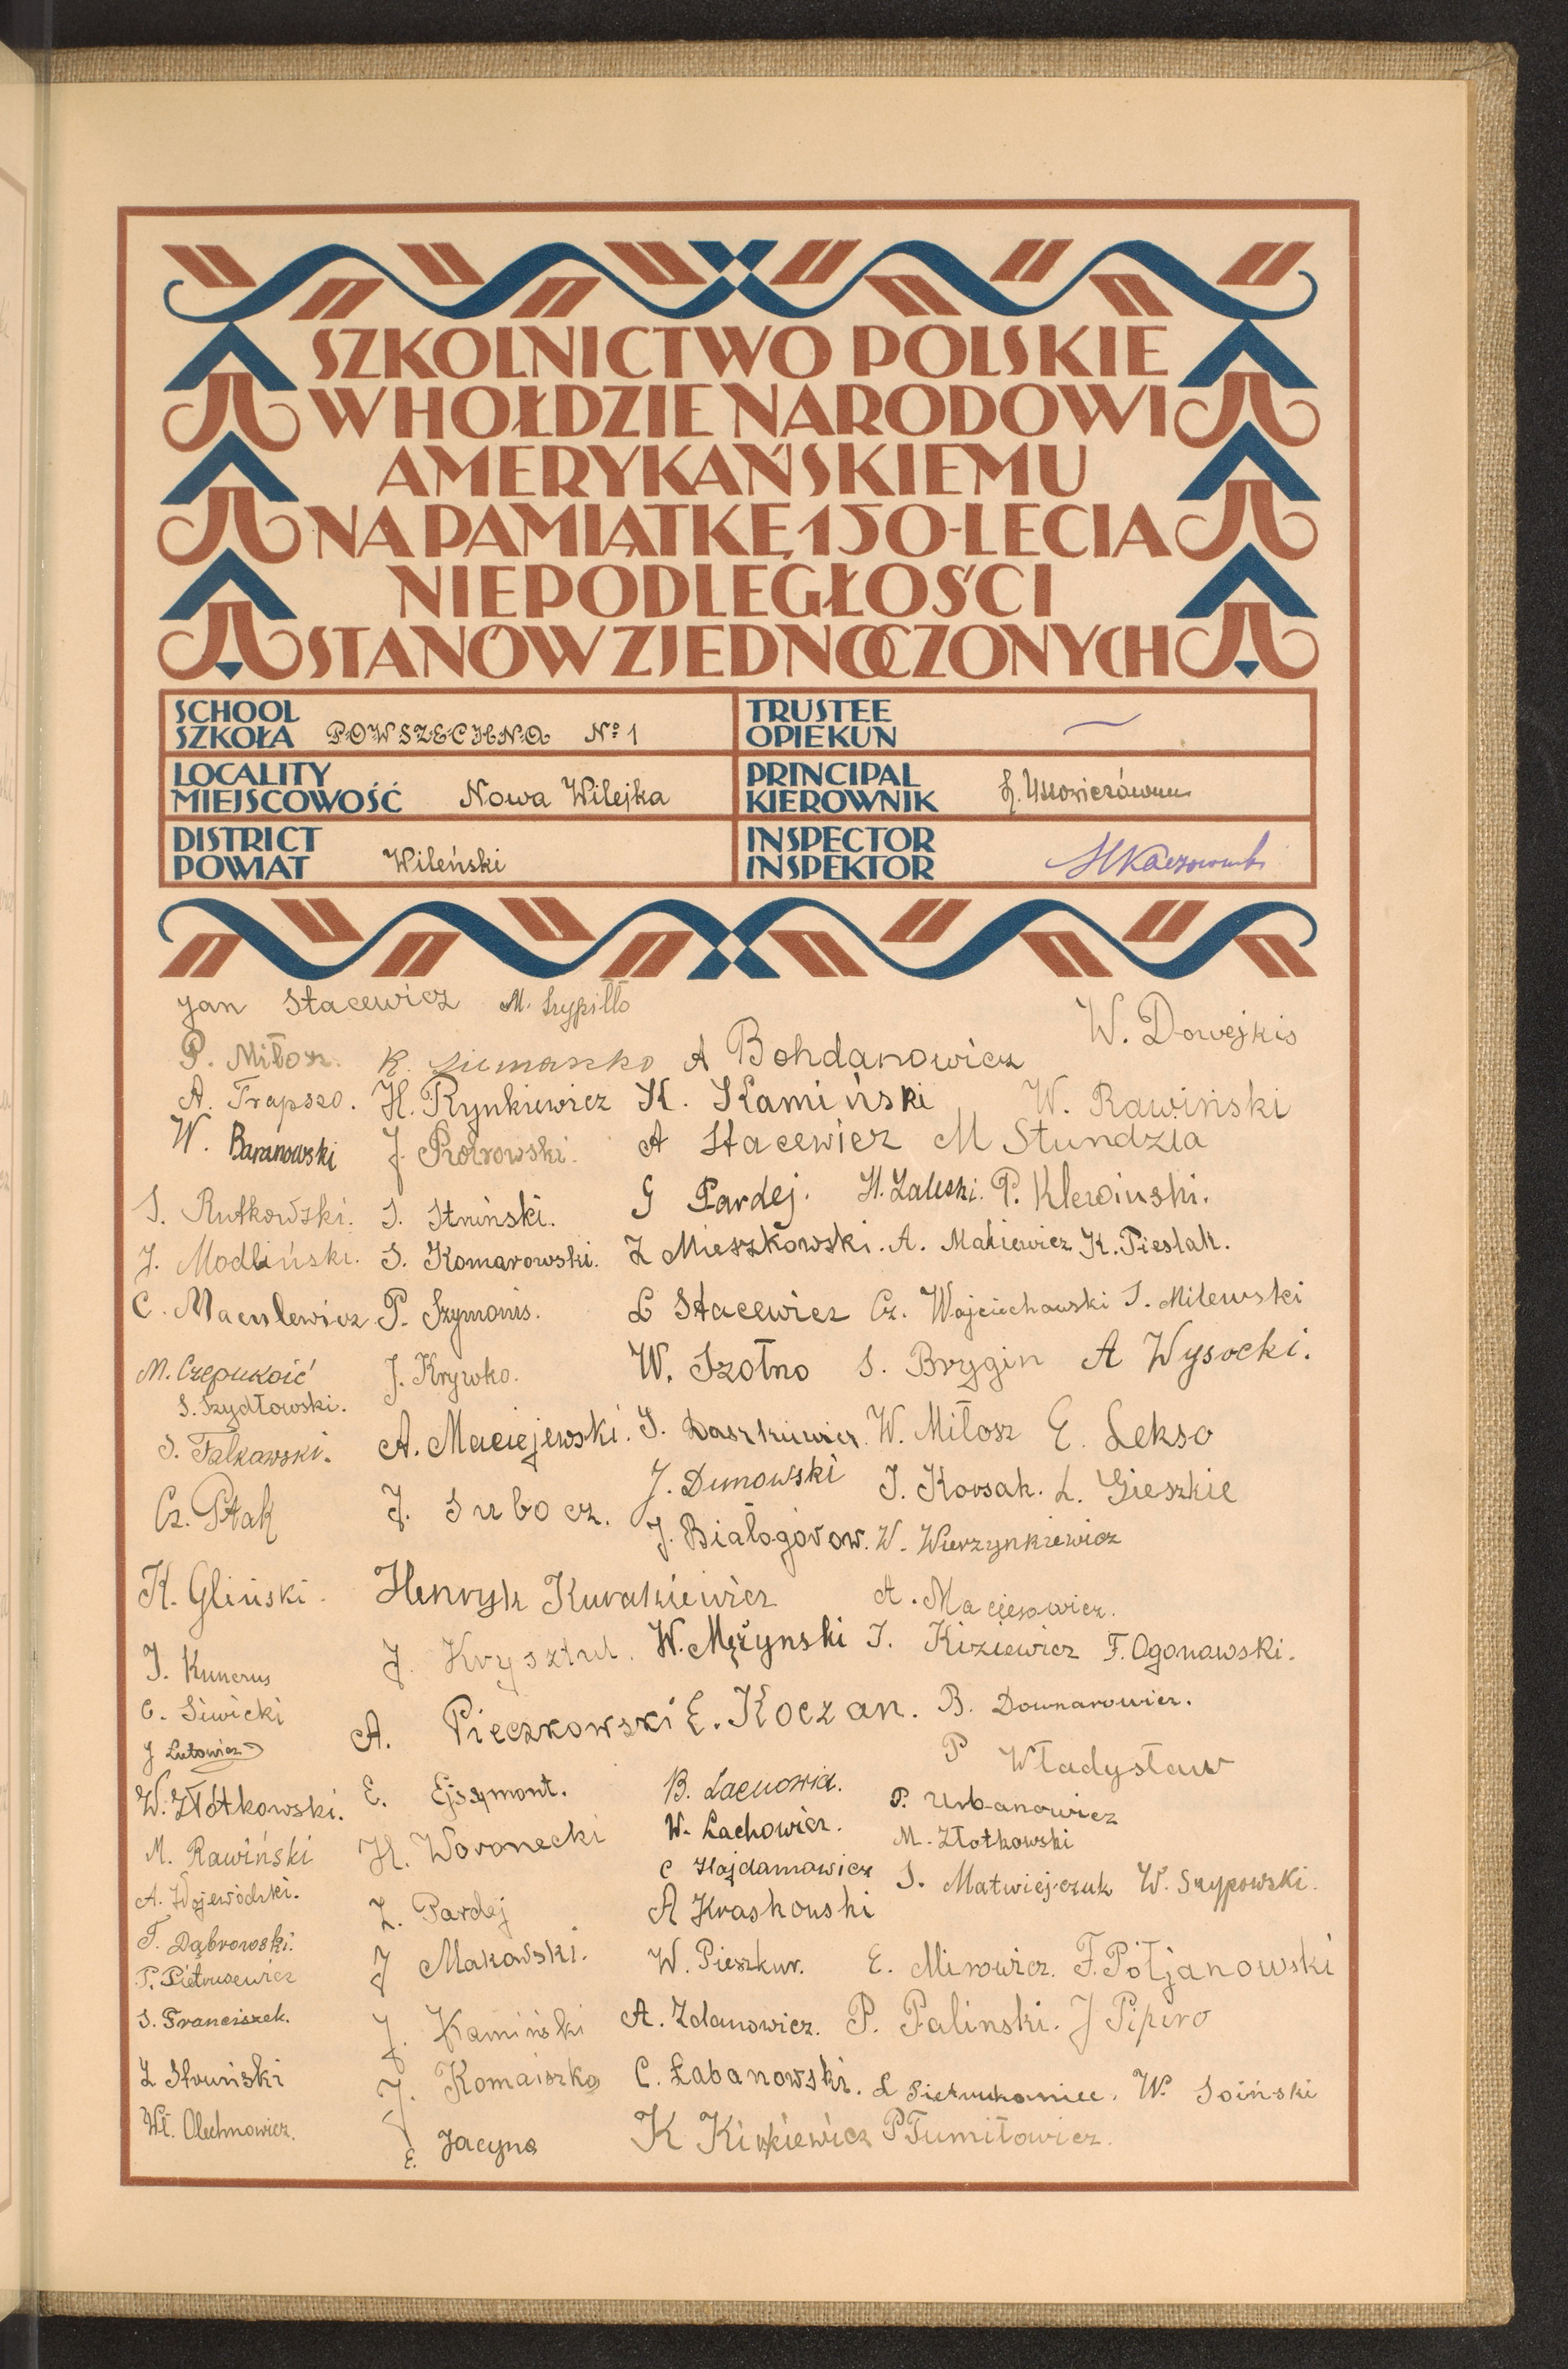 SZKOLNICTWO POLSKIE
W HOŁDZIE NARODOWI
AMERYKAŃSKIEMU
NA PAMIĄTKĘ 150-LECIA
NIEPODLEGŁOŚCI
STANÓW ZJEDNOCZONYCH
SCHOOL
SZKOŁA POWSZECHNA Nº 1
TRUSTEE
OPIEKUN
LOCALITY
MIEJSCOWOŚĆ Nowa Wilejka
PRINCIPAL
KIEROWNIK
DISTRICT
POWIAT Wileński
INSPECTOR
INSPEKTOR
Jan Stacewicz M. Szypiłło W. Dowejkis
P. Miłosz. K. Siemaszko A Bohdanowicz
A. Trapszo. H. Rynkiewicz K. Kamiński W. Rawiński
W. Baranowski J. Piotrowski. A Stacewicz M Stundzia
S. Rutkowski. S. Struński. G Pardej. H. Zaleski. P. Klewinski.
J. Modliński. S. Komarowski. Z Mieszkowski. A. Makiewicz K. Pieslak.
C. Maculewicz P. Szymonis. L Stacewicz Cz. Wojciechowski S. Milewski
M. Czepukoić J. Krywko. W. Szołno S. Brygin A Wysocki.
S. Szydłowski.
S. Falkowski. A. Maciejewski. S. Daszkiewicz. W. Miłosz E. Lekso
Cz. Ptak J. Subocz. J. Dunowski I. Korsak. L. Gieszkie
J. Białogórow. W. Wierzynkiewicz
K. Gliński. Henryk Kurakiewicz A. Maciejewicz.
J. Kunerus J. Krysztul. W. Mężynski I. Kiziewicz F. Ogonowski.
C. Siwicki A. Pieczkowski E. Koczan. B. Downarowicz.
J Lutowicz P Władysław
W. Złotkowski. E. Ejszymont. B. P. Urbanowicz
M. Rawiński H. Woronecki W. Lachowicz. M. Złotkowski
A. Wojewódzki. Z. Pardej C Hajdamowicz S. Matwiejczuk W. Szypowski.
A Kraskowski
T. Dąbrowski. J Makowski. W. Pieszkur. E. Mirowicz. F. Połjanowski
P. Pietrusewicz
S. Franciszek. J. Kamiński A. Zdanowicz. P. Palinski. J Pipiro
Z Struński J. Komaiszko C. Łabanowski. L W. Soiński
Wł. Olechnowicz. E. Jacyna K Kinkiewicz P Tumiłowicz.